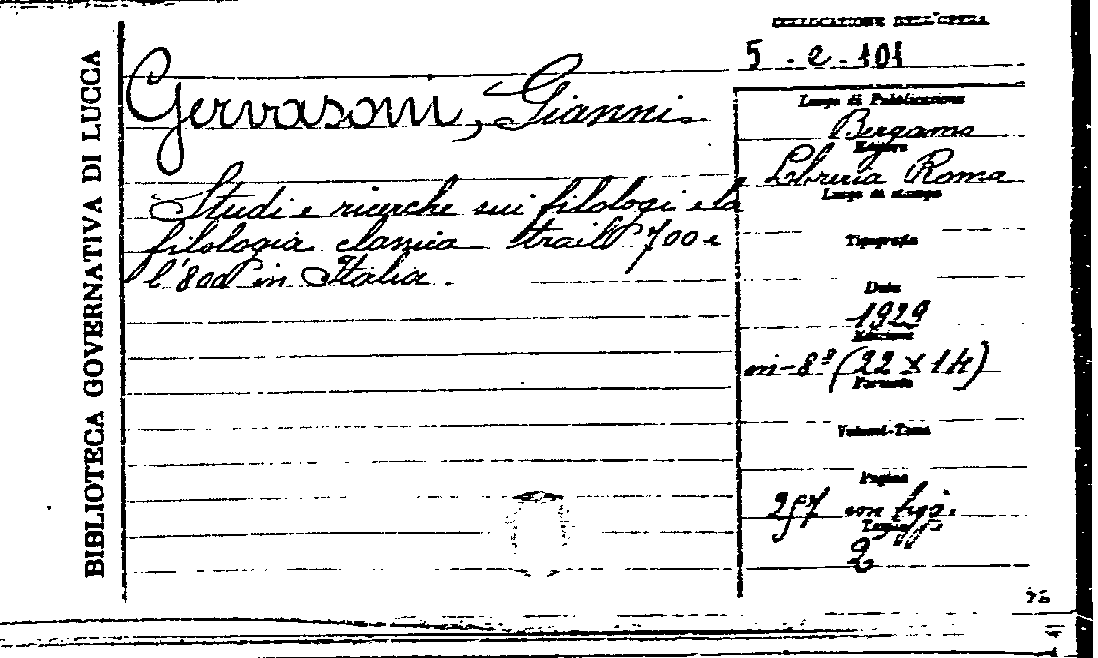 BIBLIOTECA GOVERNATIVA DI LUCCA
COLLOCAZIONE DELL'OPERA
5 . e . 101
Gervasoni, Gianni.
Studi e ricerche sui filologi e la
filologia classica tra il '700 e
l'800 in Italia.
Luogo di Pubblicazione
Bergamo
Editore
Libreria Roma
Luogo di stampa
Tipografia
Data
1929
Edizione
in-8º (22 x 14)
Formato
Volumi-Tomo
Pagine
257 con figg.
Tavole
2